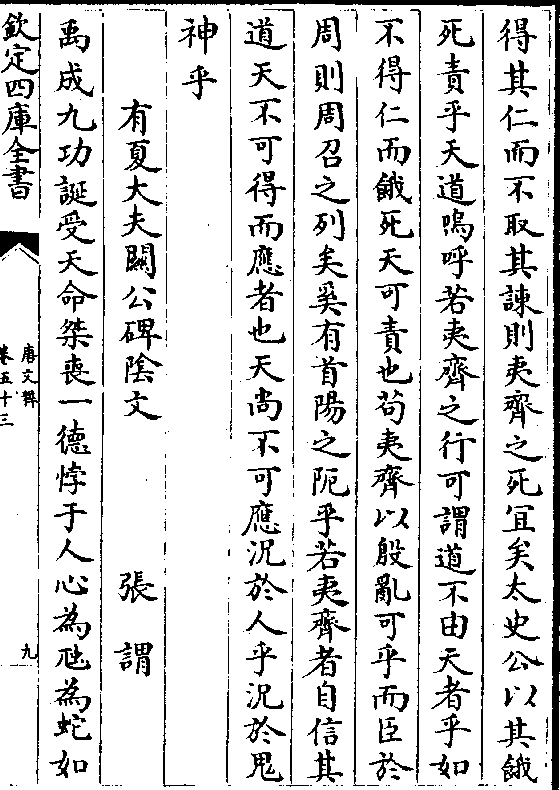 得其仁而不取其諫則夷齊之死宜矣太史公以其餓
死責乎天道嗚呼若夷齊之行可謂道不由天者乎如
不得仁而餓死天可責也苟夷齊以殷亂可乎而臣於
周則周召之列矣奚有首陽之阨乎若夷齊者自信其
道天不可得而應者也天尚不可應況於人乎況於鬼
神乎
有夏大夫關公碑陰文 張謂
禹成九功誕受天命桀喪一德悖于人心為虺為蛇如
欽定四庫全書
唐文粹
卷五十三
九